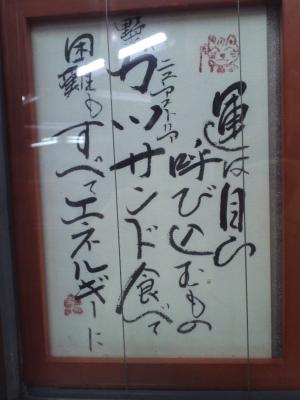 運は自ら
呼び込むもの
ニューアストリア
カツサンド食べて
困難もすべてエネルギーに